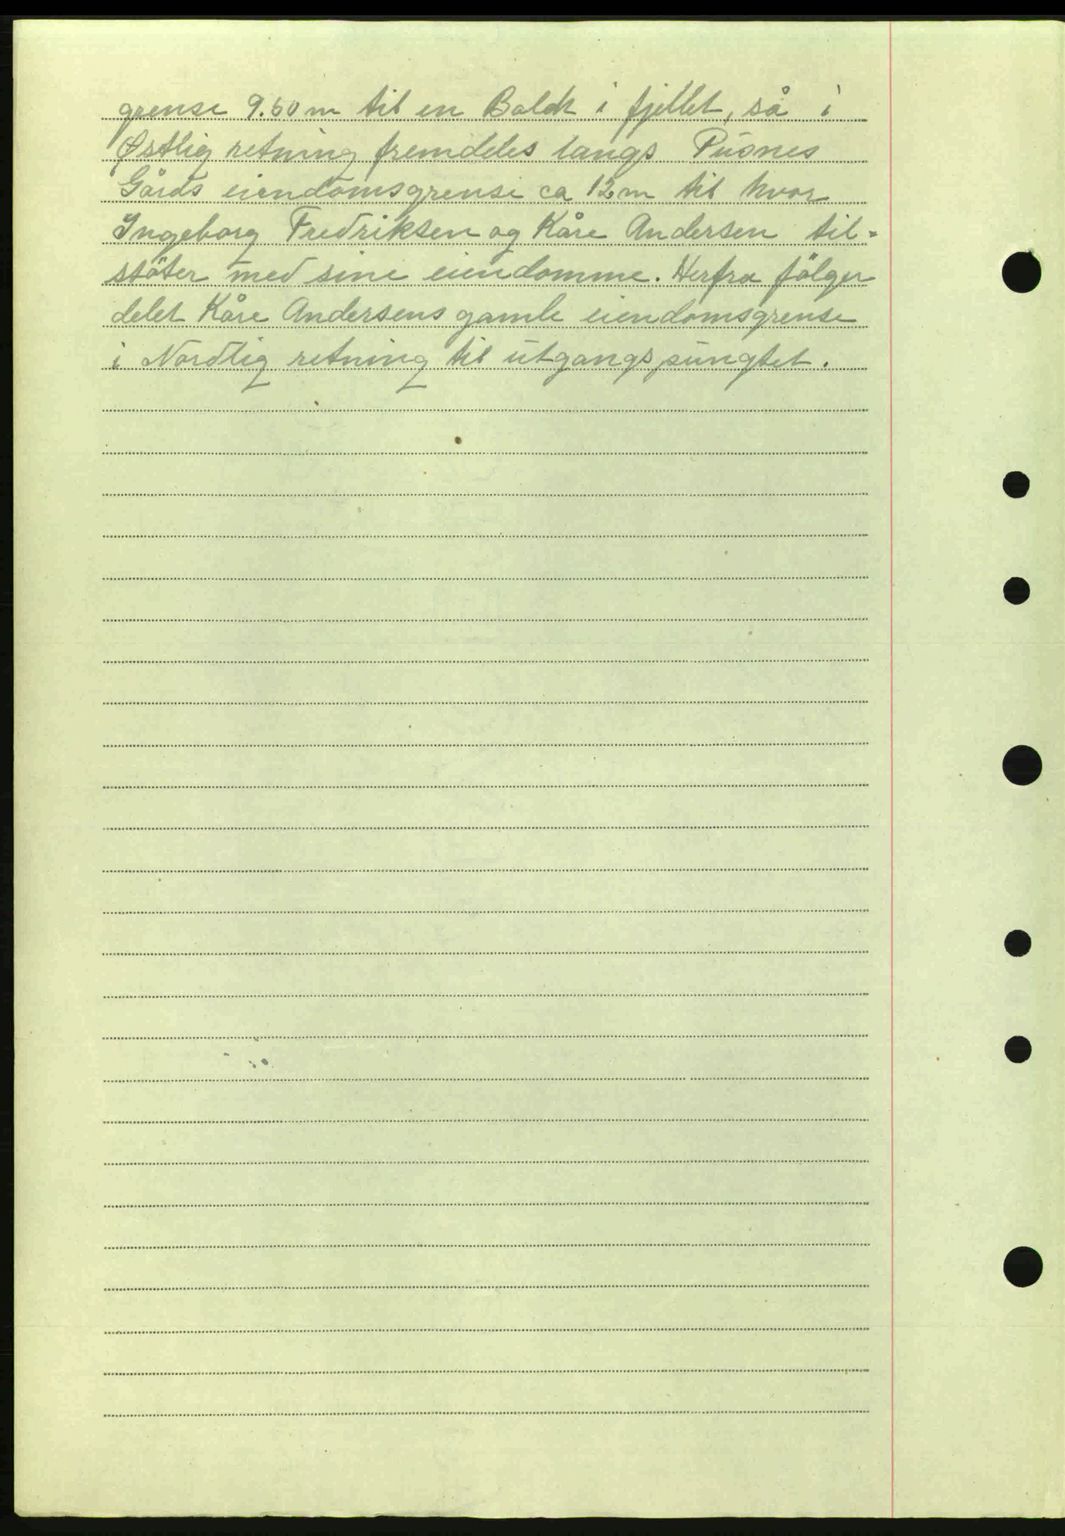 grense 9.60 m til en Boldt i fjellet, så i
Østlig retning fremdeles langs Pusnes
Gårds eiendomsgrense ca 12 m til hvor
Ingeborg Fredriksen og Kåre Andersen til-
støter med sine eiendomme. Herfra følger
delet Kåre Andersens gamle eiendomsgrense
i Nordlig retning til utgangspungtet.